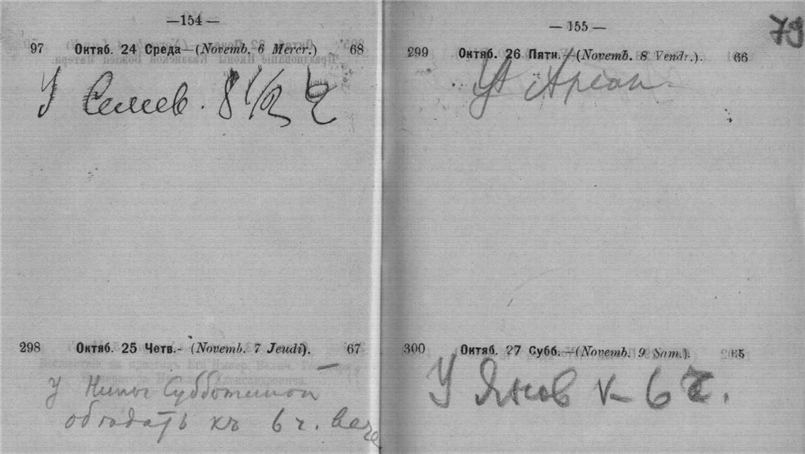 —154—
97 Октяб. 24 Среда—(Novemb. 6 Mercr.) 68
У Семев. 8 1/2 ч
298 Октяб. 25 Четв.- (Novemb. 7 Jeudi). 67
У Нины Субботиной
обѣдать къ 6 ч. вече
—155—
79
299 Октяб. 26 Пятн.—(Novemb. 8 Vendr.). 66
У
300 Октяб. 27 Субб.—(Novemb. 9 Sam.). 65
У к 6 ч.